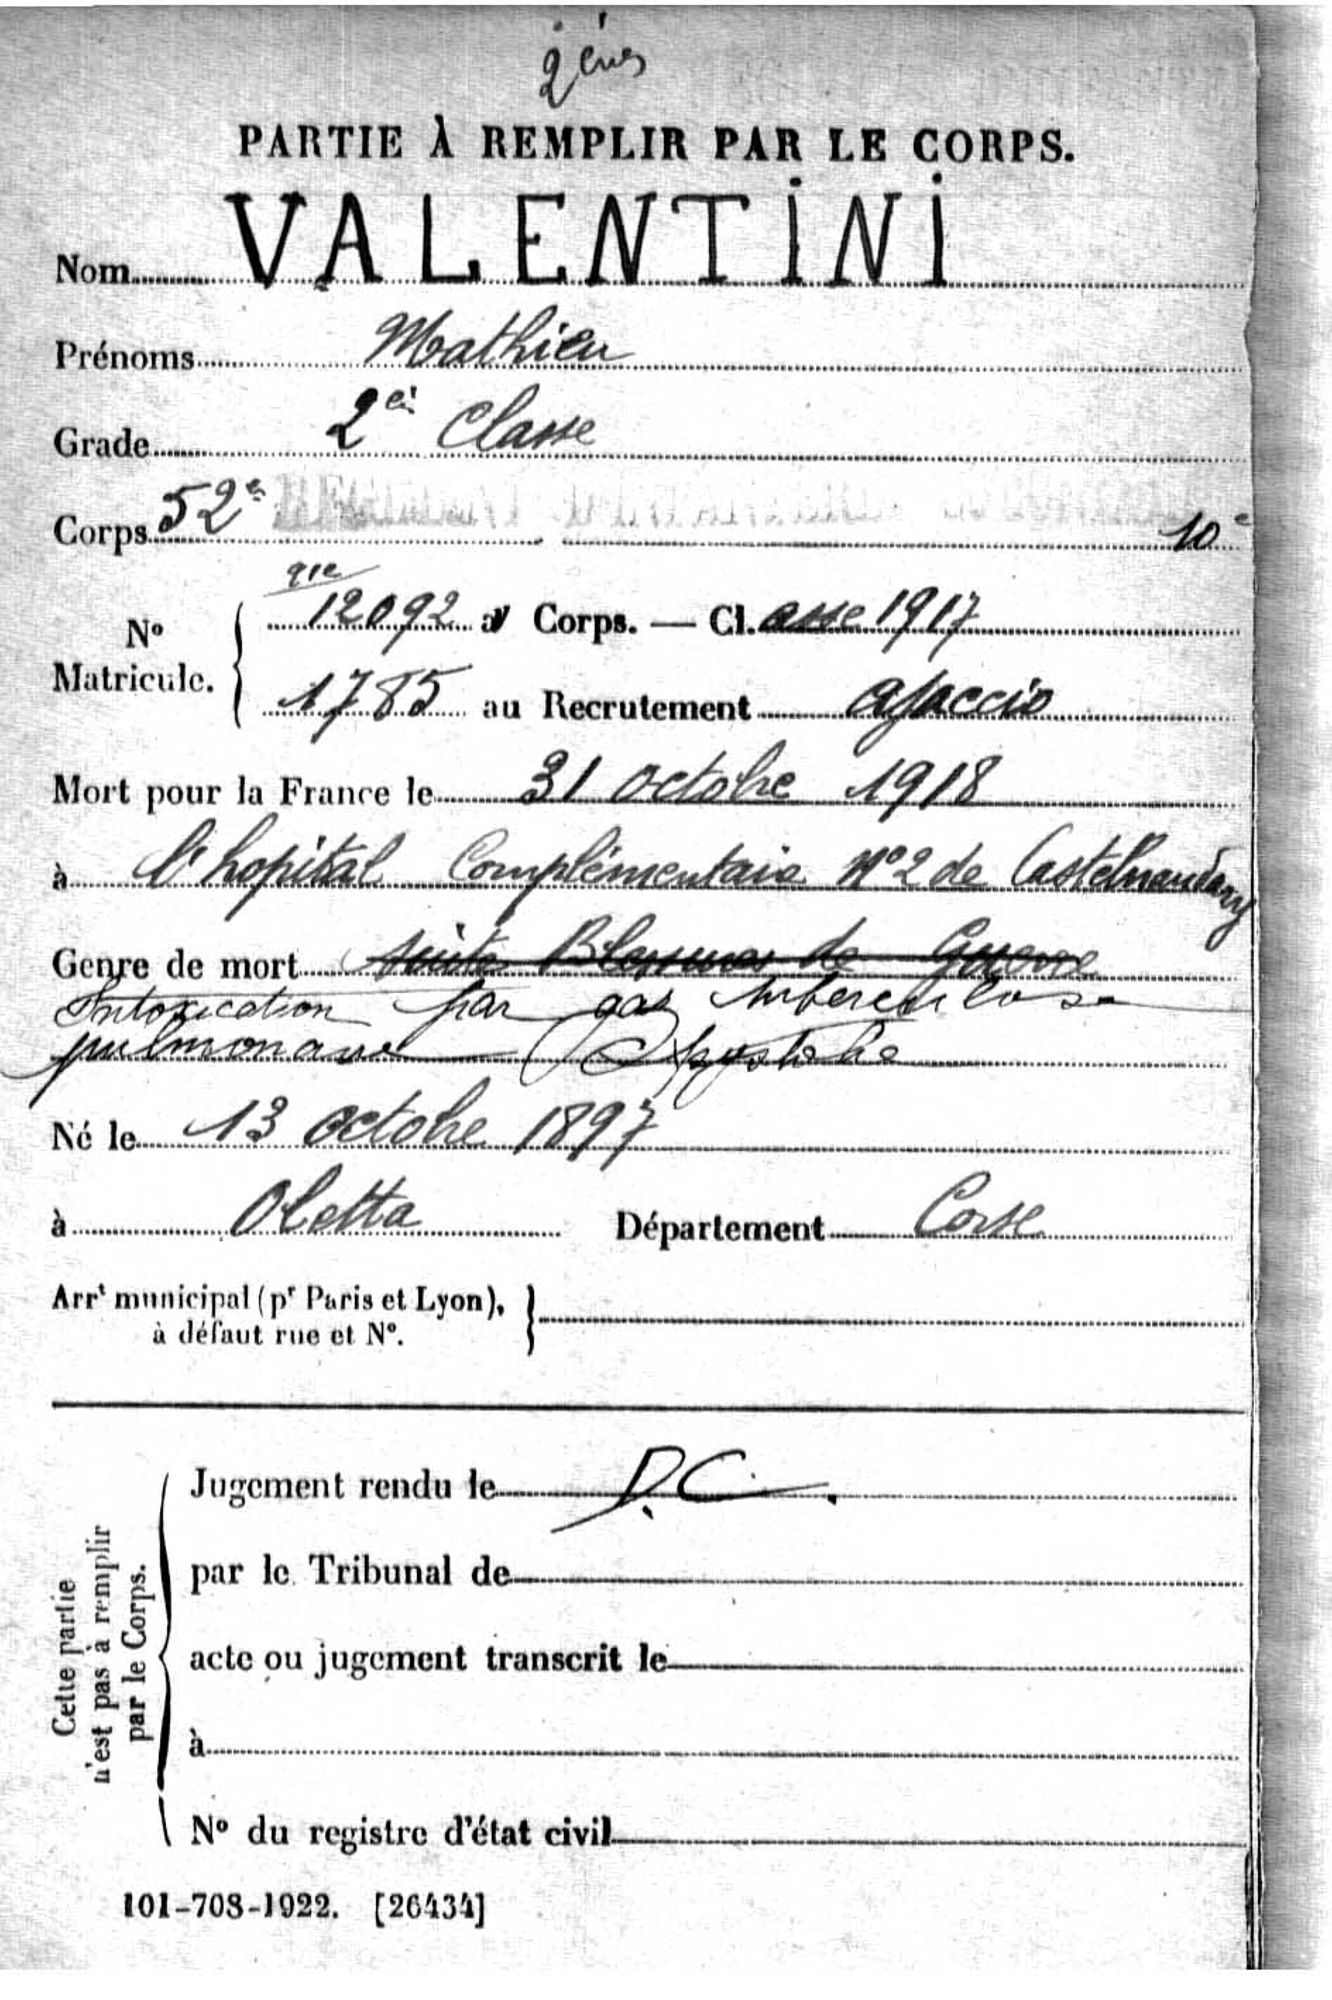 PARTIE À REMPLIR PAR LE CORPS.
Nom VALENTINI
Prénoms Mathieu
Grade 2e Classe
Corps 52e 10e
No Matricule. 12092 au Corps. — Cl.asse 1917
1785 au Recrutement ajaccio
Mort pour la France le 31 octobre 1918
à l'hopital Complémentaire No 2 de Castelnaudary
Genre de mort suite Blessures de Guerre
Intoxication par gaz tuberculose
pulmonaire
Né le 13 octobre 1897
à Oletta Département Corse
Arrt municipal (pr Paris et Lyon),
à défaut rue et No.
Cette partie
n'est pas à remplir
par le Corps.
Jugement rendu le D.C.
par le Tribunal de
acte ou jugement transcrit le
à
No du registre d'état civil
101-708-1922. [26434]